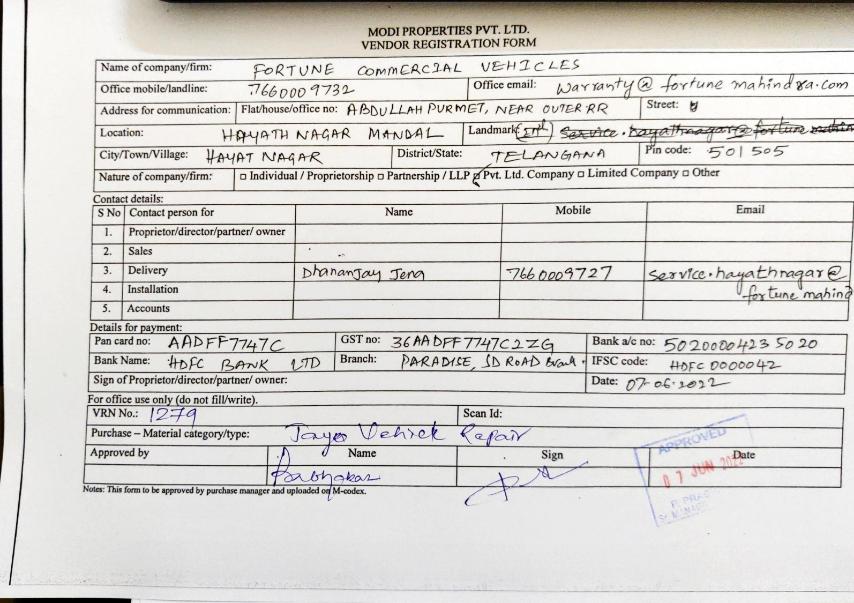 MODI PROPERTIES PVT. LTD.
VENDOR REGISTRATION FORM
Name of company/firm: FORTUNE COMMERCIAL VEHICLES
Office mobile/landline: 7660009732 Office email: warranty@fortunemahindra.com
Address for communication: Flat/house/office no: ABDULLAH PURMET, NEAR OUTER RR Street:
Location: HAYATH NAGAR MANDAL Landmark service.hayathnagar@fortunemahin
City/Town/Village: HAYAT NAGAR District/State: TELANGANA Pin code: 501505
Nature of company/firm: □ Individual / Proprietorship □ Partnership / LLP □ Pvt. Ltd. Company □ Limited Company □ Other
Contact details:
S No Contact person for Name Mobile Email
1. Proprietor/director/partner/ owner
2. Sales
3. Delivery Dhananjay Jena 7660009727 service.hayathnagar@
4. Installation fortunemahind
5. Accounts
Details for payment:
Pan card no: AADFF7747C GST no: 36AADFF7747C2ZG Bank a/c no: 50200004235020
Bank Name: HDFC BANK LTD Branch: PARADISE, SD ROAD Branch. IFSC code: HDFC0000042
Sign of Proprietor/director/partner/ owner: Date: 07-06-2022
For office use only (do not fill/write).
VRN No.: 1279 Scan Id:
Purchase – Material category/type: Vehicle Repair
Approved by Name Sign Date
Prabhakar
APPROVED
07 JUN 2022
Notes: This form to be approved by purchase manager and uploaded on M-codex.